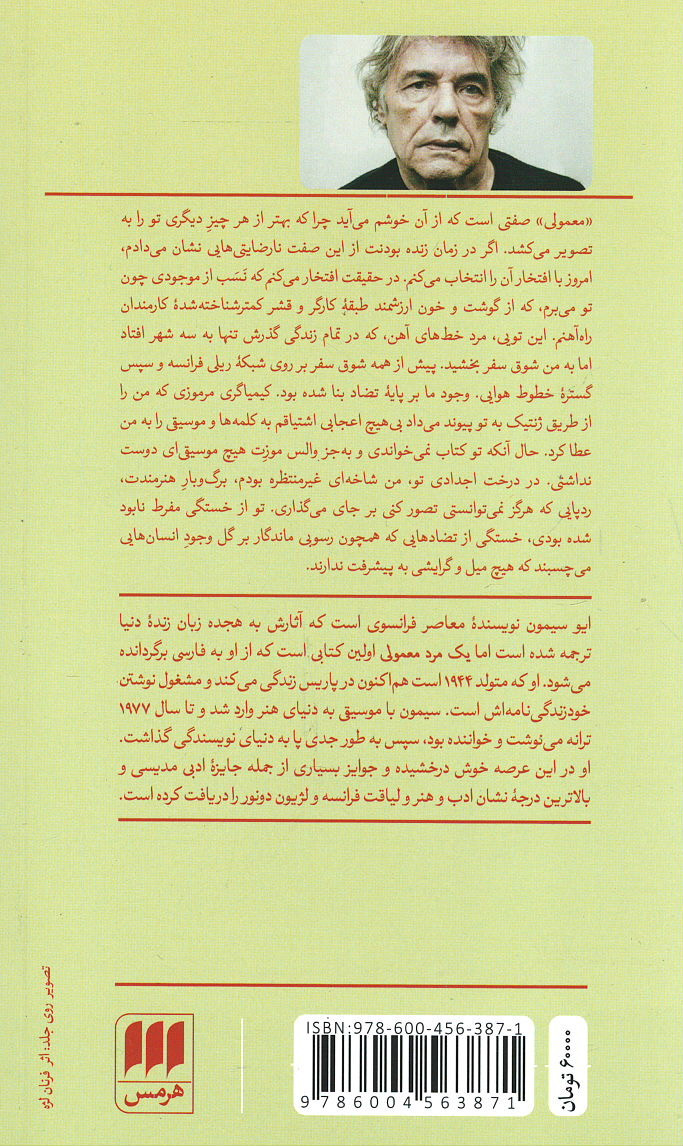 «معمولی» صفتی است که از آن خوشم می‌آید چرا که بهتر از هر چیزِ دیگری تو را به
تصویر می‌کشد. اگر در زمان زنده بودنت از این صفت نارضایتی‌هایی نشان می‌دادم،
امروز با افتخار آن را انتخاب می‌کنم. در حقیقت افتخار می‌کنم که نَسَب از موجودی چون
تو می‌برم، که از گوشت و خون ارزشمند طبقهٔ کارگر و قشر کمترشناخته‌شدهٔ کارمندان
راه‌آهنم. این تویی، مرد خط‌های آهن، که در تمام زندگی گذرش تنها به سه شهر افتاد
اما به من شوق سفر بخشید. پیش از همه شوق سفر بر روی شبکهٔ ریلی فرانسه و سپس
گسترهٔ خطوط هوایی. وجود ما بر پایهٔ تضاد بنا شده بود. کیمیاگری مرموزی که من را
از طریق ژنتیک به تو پیوند می‌داد بی‌هیچ اعجابی اشتیاقم به کلمه‌ها و موسیقی را به من
عطا کرد. حال آنکه تو کتاب نمی‌خواندی و به‌جز والس موزِت هیچ موسیقی‌ای دوست
نداشتی. در درخت اجدادی تو، من شاخه‌ای غیرمنتظره بودم، برگ‌وبارِ هنرمندت،
ردپایی که هرگز نمی‌توانستی تصور کنی بر جای می‌گذاری. تو از خستگی مفرط نابود
شده بودی، خستگی از تضادهایی که همچون رسوبی ماندگار بر گل وجودِ انسان‌هایی
می‌چسبند که هیچ میل و گرایشی به پیشرفت ندارند.
ایو سیمون نویسندهٔ معاصر فرانسوی است که آثارش به هجده زبان زندهٔ دنیا
ترجمه شده است اما یک مرد معمولی اولین کتابی است که از او به فارسی برگردانده
می‌شود. او که متولد ۱۹۴۴ است هم‌اکنون در پاریس زندگی می‌کند و مشغول نوشتن
خودزندگی‌نامه‌اش است. سیمون با موسیقی به دنیای هنر وارد شد و تا سال ۱۹۷۷
ترانه می‌نوشت و خواننده بود، سپس به طور جدی پا به دنیای نویسندگی گذاشت.
او در این عرصه خوش درخشیده و جوایز بسیاری از جمله جایزهٔ ادبی مدیسی و
بالاترین درجهٔ نشان ادب و هنر و لیاقت فرانسه و لژیون دونور را دریافت کرده است.
تصویر روی جلد: اثر فرنان لژه
هرمس
ISBN:978-600-456-387-1
9 786004 563871
۶۰۰۰۰ تومان